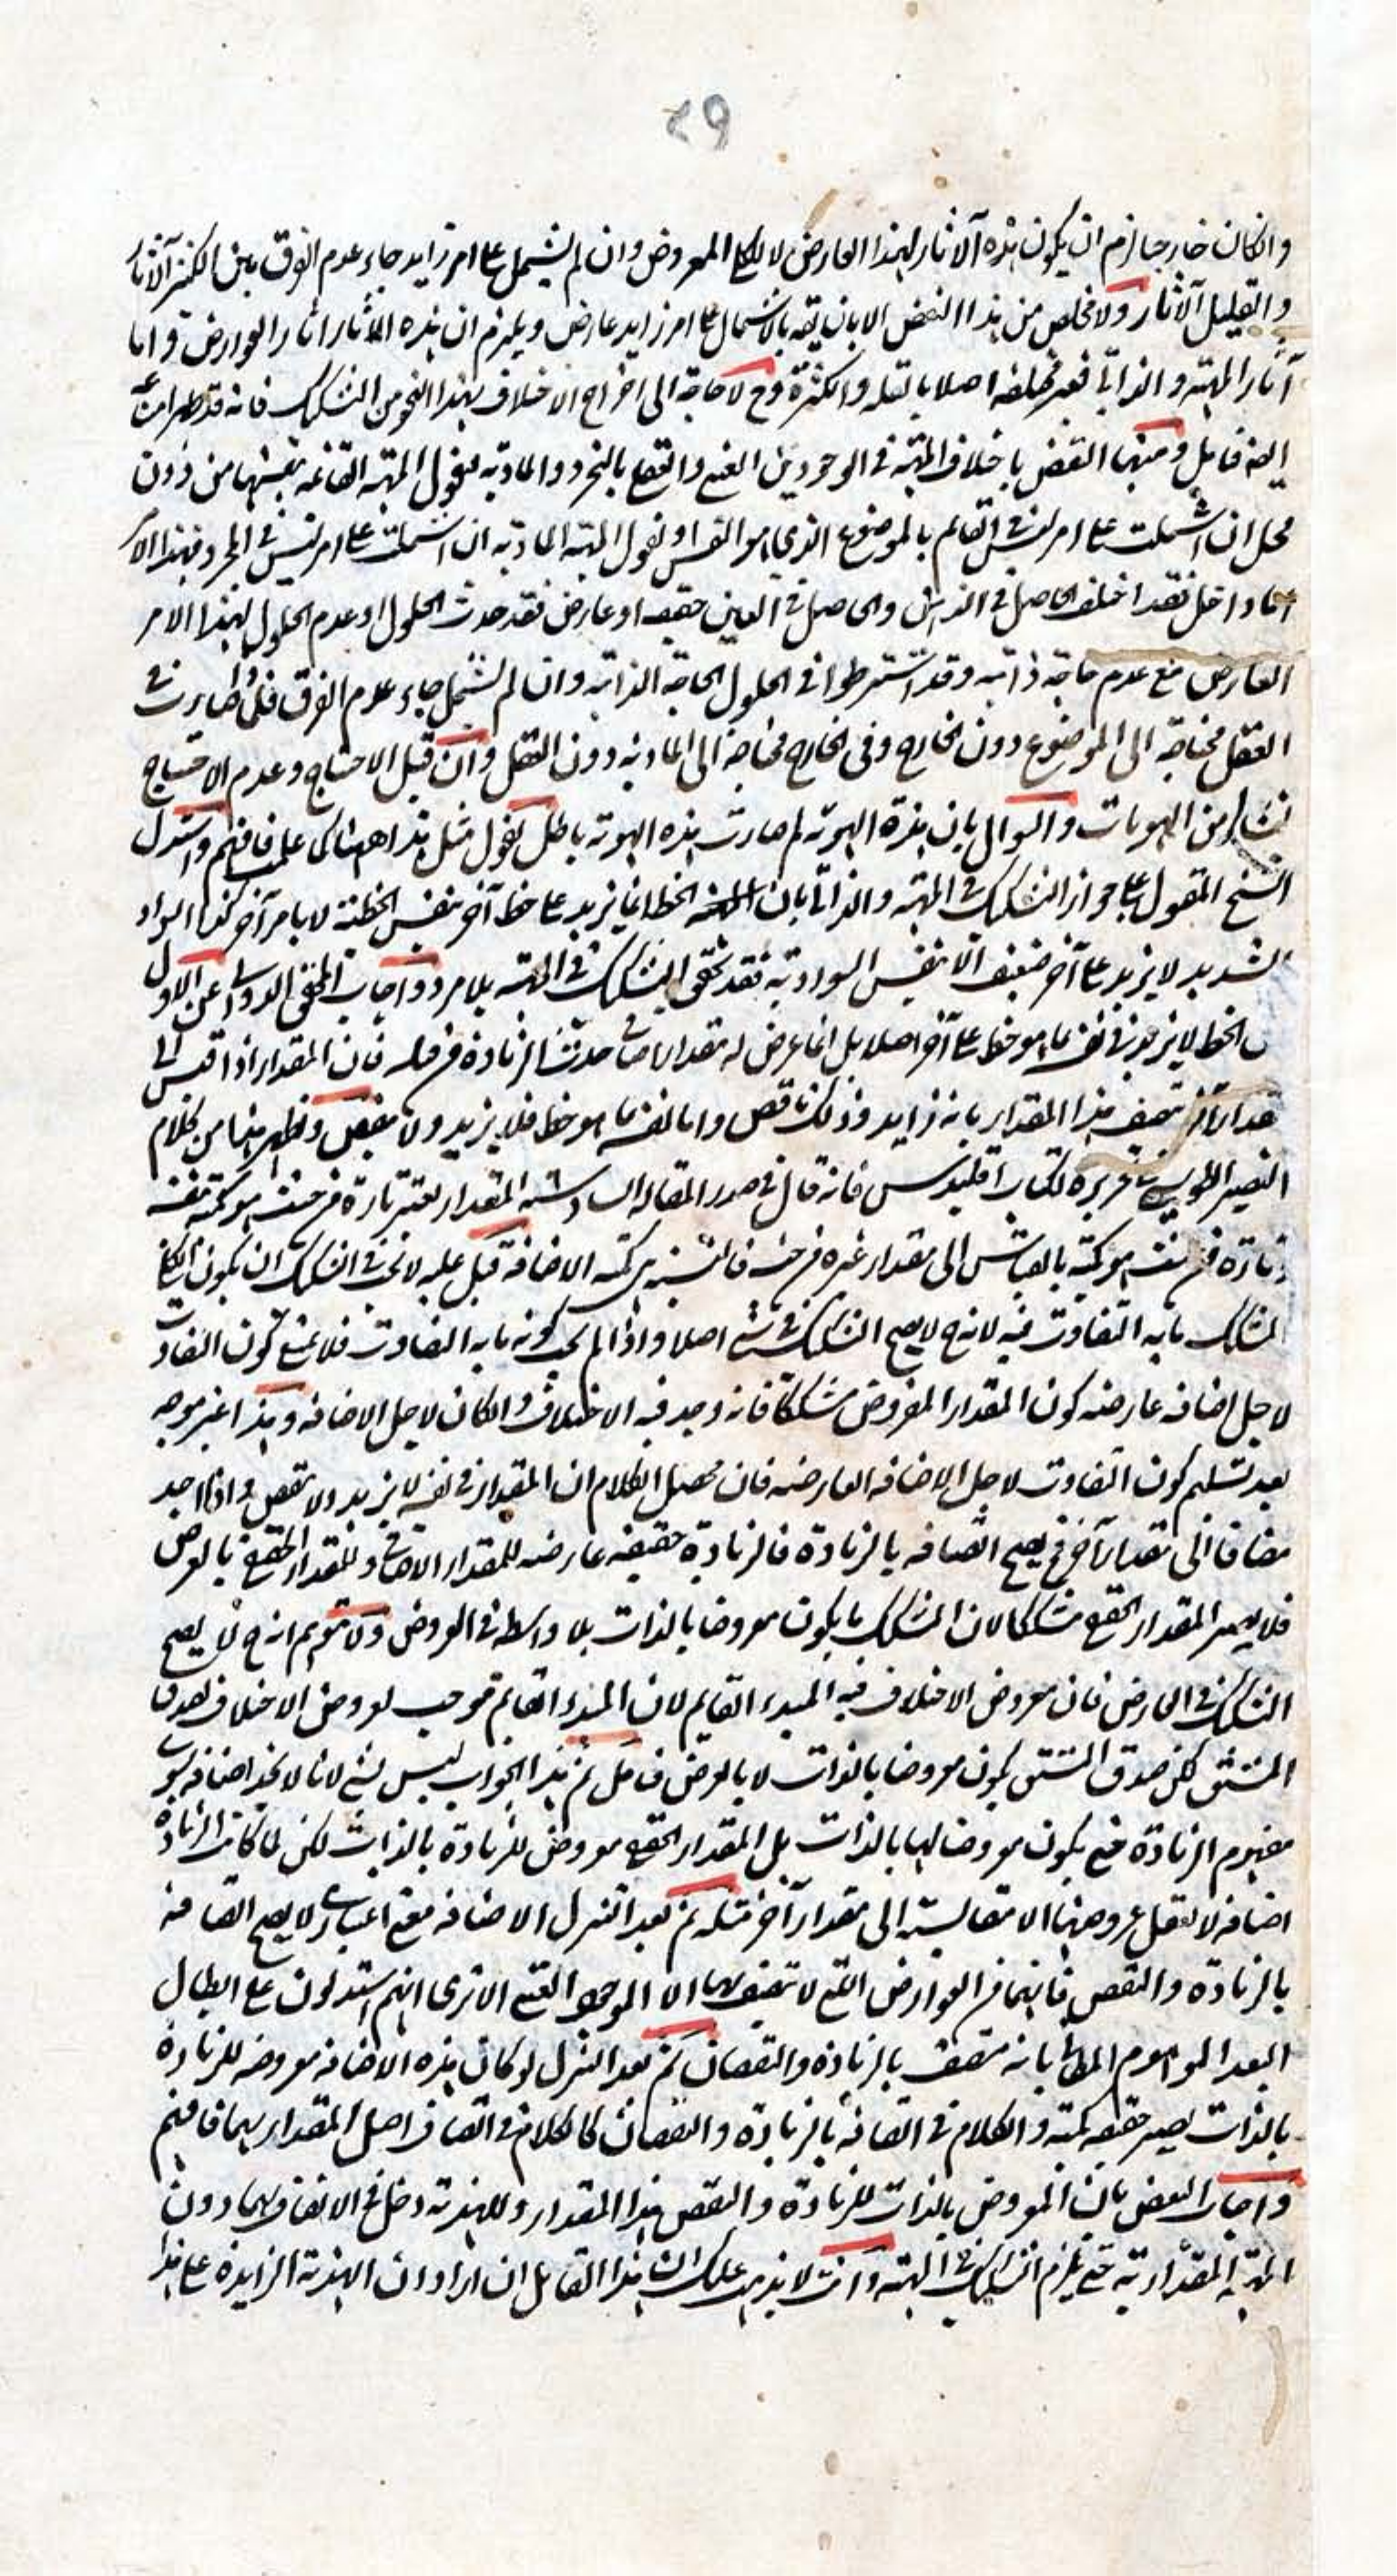 ٢٩
والكان خارجا لزم ان يكون هذه الاثار لهذا العارض لا لكل المعروض وان لم يشتمل على امر زايد جاء عدم الفرق بين الكثير الآثار
والقليل الآثار ولا مخلص من هذا النقض الا بان يقه بالاشتمال على امر زايد عارض ويلزم ان هذه الاثار اثار العوارض واما
آثار المهية والذاتى فغير مختلفه اصلا بالقله والكثرة وح لا حاجة الى اخراج الاختلاف بهذا النحو من التشكيك فانه قد ظهر
ايضه فتامل ومنها النقض باختلاف المهية فى الوجودين الغنى بالتجرد والمادية فنقول المهية القائمه بنفسها من دون
محل ان اشتملت على امر ليس فى القايم بالموضوع الذى هو النفس او نقول المهية المادية ان اشتملت على امر ليس فى المجرد فهذا الامر
اما داخل فقد اختلف الحاصل فى الذهن والحاصل فى العين حقيقه او عارض فقد حدث الحلول او عدم الحلول لهذا الامر
العارض مع عدم حاجة ذاتيه وقد اشترطوا فى الحلول الحاجة الذاتيه وان لم تشتمل جاء عدم الفرق فلم صارت فى
العقل محتاجة الى الموضوع دون الخارج وفى الخارج محتاجة الى المادية دون العقل وان قيل الاحتياج وعدم الاحتياج
نشاء من الهويات والسوال بان هذه الهوية لم صارت هذه الهوية باطل نقول مثل هذا ههنا كى علمت فافهم واستدل
الشيخ المقتول على جواز التشكيك فى المهية والذاتى بان الخط انما يزيد على خط آخر بنفس الخطية لا بامر آخر كذا السواد
الشديد لا يزيد على آخر ضعيف الا بنفس السوادية فقد تحقق التشكيك فى المهية بلا مرد واجاب المحقق الدوانى عن الاول
بان الخط لا يزيد فى نفسه بما هو خط على آخر اصلا بل انما عرض له مقدار اضافى حدثت الزيادة من قبله فان المقدار اذا قيس الى
مقدار آخر يتصف هذا المقدار بانه زايد وذلك ناقص واما لنفسه بما هو خط فلا يزيد ولا ينقص وظهر هذا من كلام
النصير الطوسى فى تحريره لكتاب اقليدس فانه قال فى صدر المقاله السادسه المقدار يعتبر تارة من حيث هو كمية بنفسه
وتارة من حيث هو كمية بالقياس الى مقدار غيره من جنسه فالنسبة هى كمية الاضافة قيل عليه لا يجب فى التشكيك ان يكون الكلى
المشكك ما به التفاوت فيه لانه ح لا يصح التشكيك فى شئ اصلا واذا لم يجب كونه ما به التفاوت فلا يمنع كون التفاوت
لاجل اضافه عارضه كون المقدار المفروض مشككا فانه وجد فيه الاختلاف والكان لاجل الاضافه وهذا غير موجه
بعد تسليم كون التفاوت لاجل الاضافه العارضه فان محصل الكلام ان المقدار فى نفسه لا يزيد ولا ينقص واذا اخد
مضافا الى مقدار آخر فح يصح اتصافه بالزيادة فالزيادة حقيقه عارضه للمقدار الاضافى وللمقدار الحقيقى بالعرض
فلا يصير المقدار الحقيقى مشككا لان المشكك ما يكون معروضا بالذات بلا واسطه فى العروض ولا تتوهم انه ح لا يصح
التشكيك فى العارض فان معروض الاختلاف فيه المبدء القايم لان المبدء القايم موجب لعروض الاختلاف لصدق
المشتق لكن صدق المشتق يكون معروضا بالذات لا بالعرض فتامل ثم هذا الجواب ليس بشئ لانا لا نجد اضافه سوى
مفهوم الزيادة حتى يكون معروضا لها بالذات بل المقدار الحقيقى معروض للزيادة بالذات لكن لما كانت الزيادة
اضافه لا نعقل عروضها الا مقايسة الى مقدار آخر مثله ثم بعد التنزل الاضافه معنى اعتبارى لا يصح اتصافه
بالزيادة والنقص فانهما من العوارض التى لا تتصف بها الا الموجود الا ترى انهم استدلون على ابطال
البعد الموهوم المكانى بانه متصف بالزيادة والنقصان ثم بعد التنزل لو كان هذه الاضافه معروضه للزيادة
بالذات يصير حقيقه كمية والكلام فى اتصافه بالزيادة والنقصان كالكلام فى اتصاف اصل المقدار بهما فافهم
واجاب البعض بان المعروض بالذات للزيادة والنقص هذا المقدار وللهذية دخل فى الاتصاف بهما دون
المهية المقدارية حتى يلزم التشكيك فى المهية وانت لا يذهب عليك ان هذا القايل ان اراد ان الهذية الزايدة على هذا